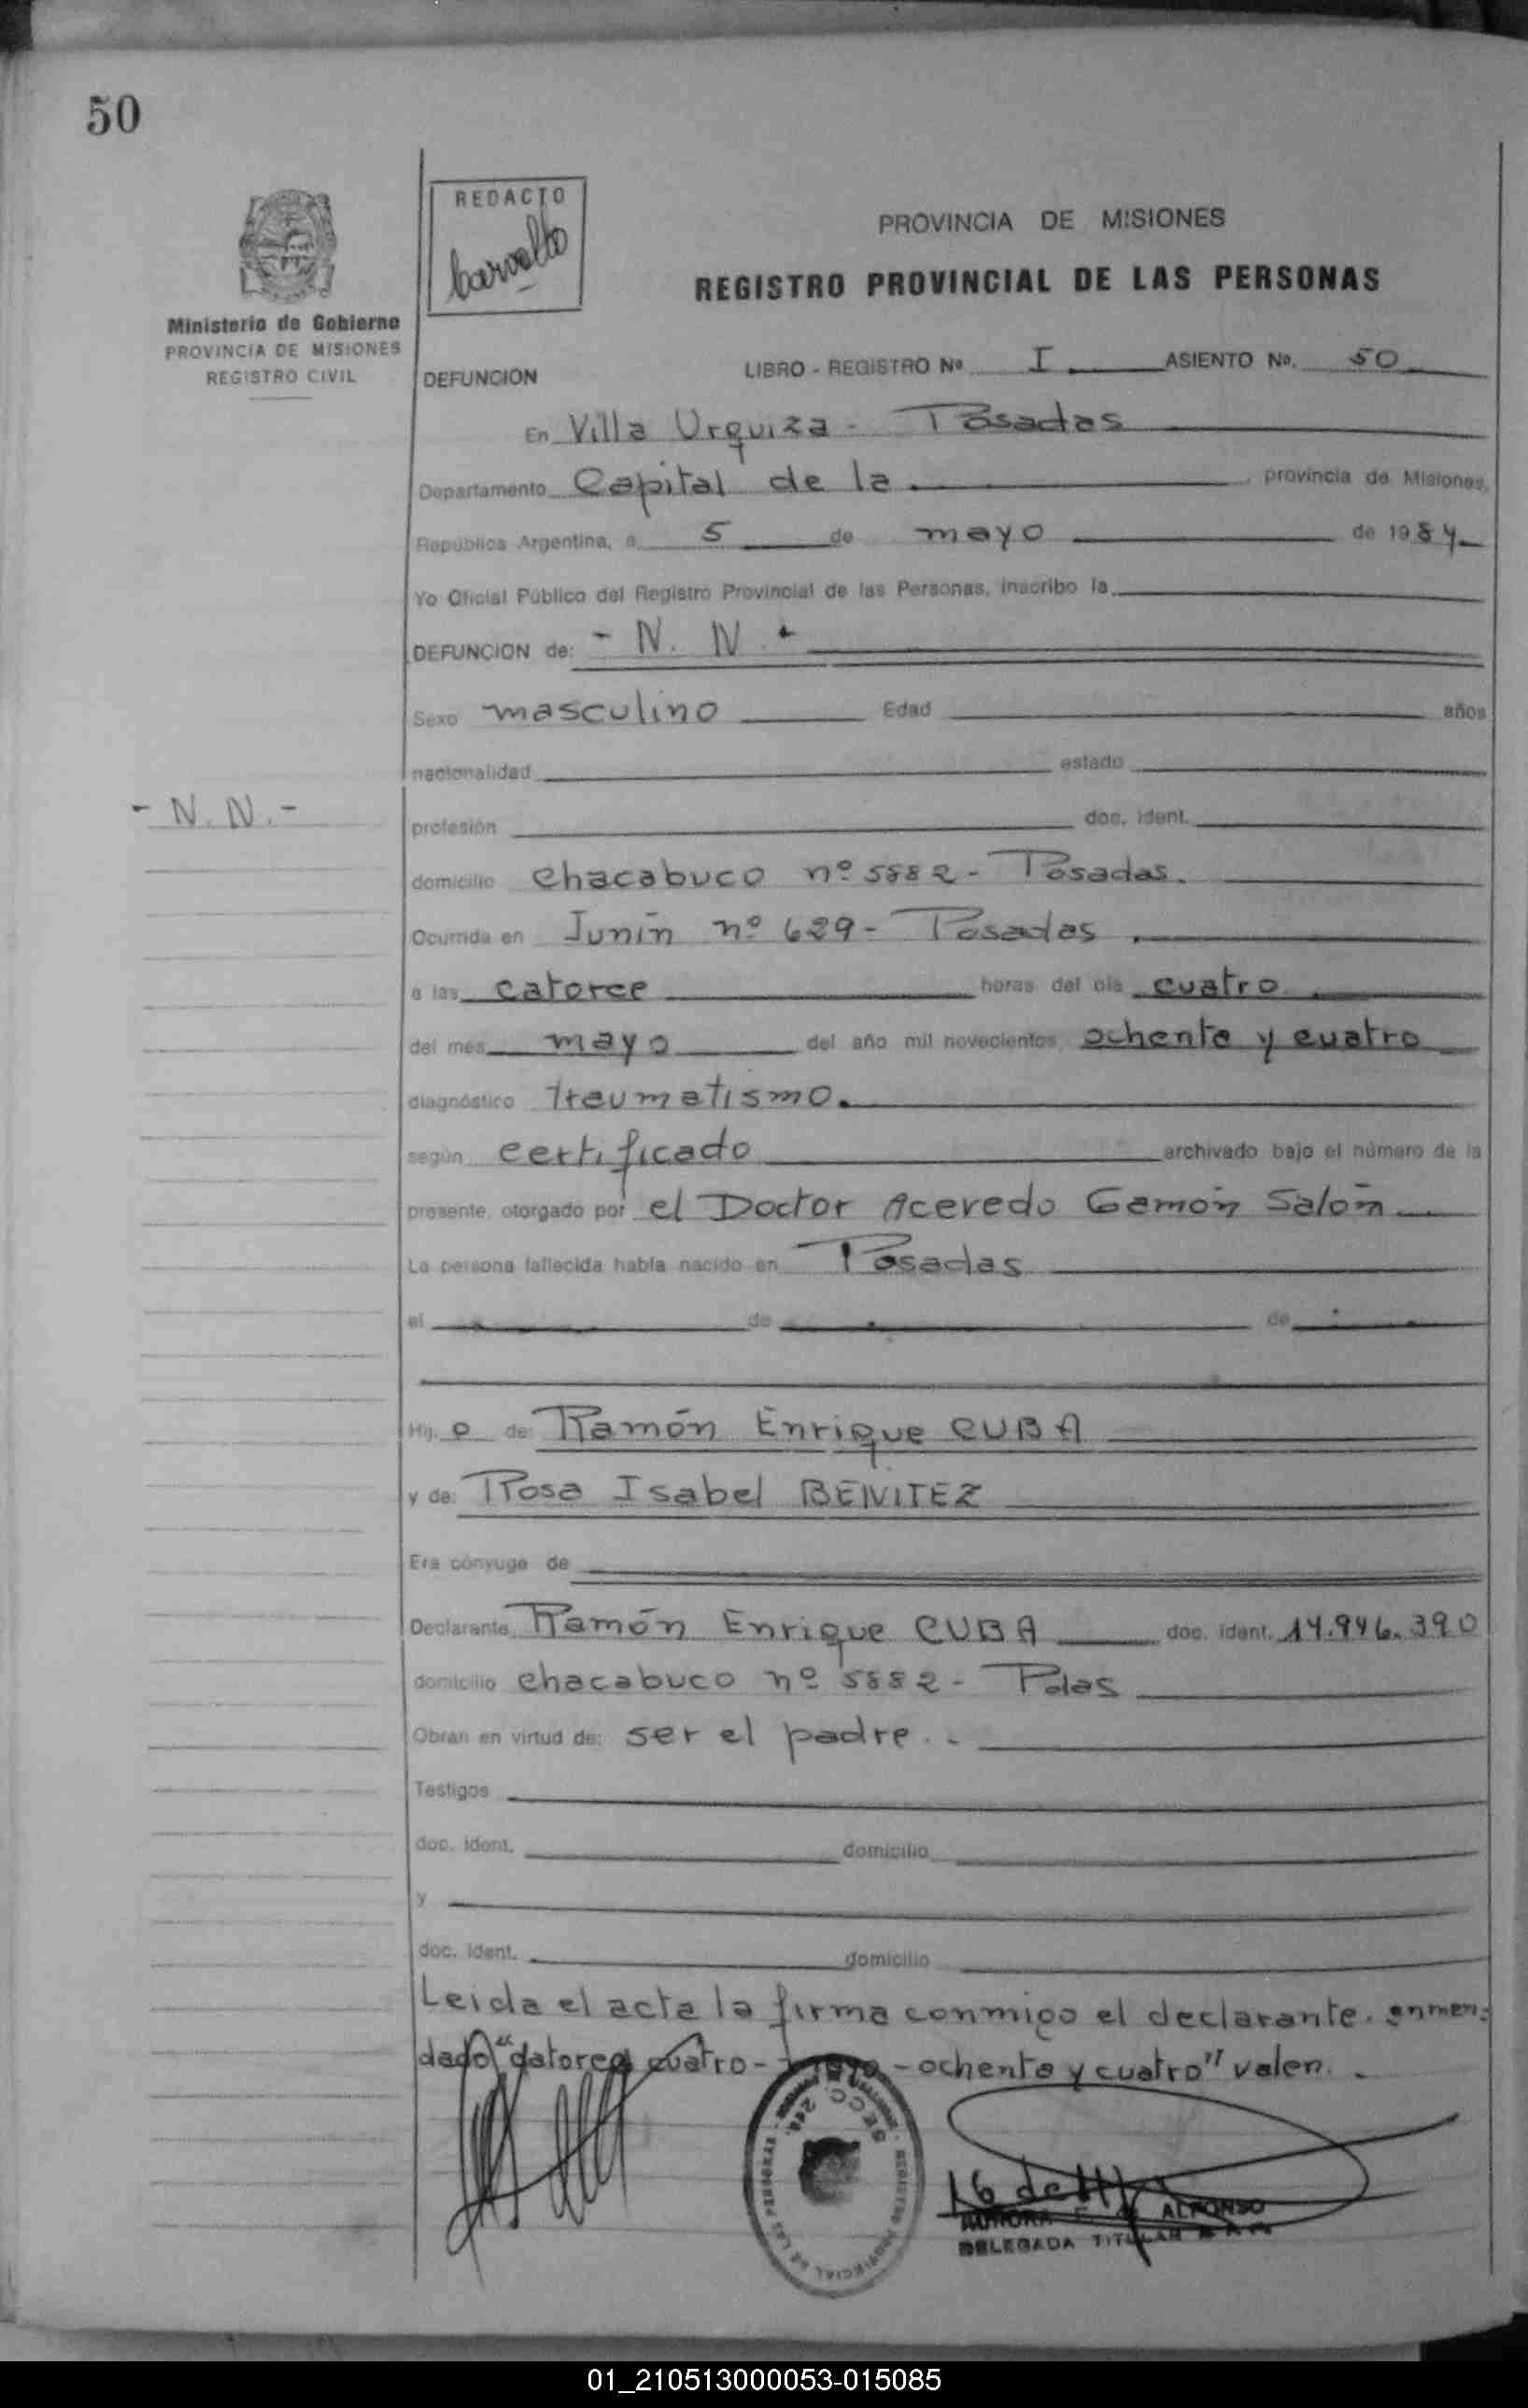 50
REDACTO
Carvallo
PROVINCIA DE MISIONES
REGISTRO PROVINCIAL DE LAS PERSONAS
Ministerio de Gobierno
PROVINCIA DE MISIONES
REGISTRO CIVIL
DEFUNCION LIBRO - REGISTRO Nº I ASIENTO No. 50
En Villa Urquiza - Posadas
Departamento Capital de la provincia de Misiones,
República Argentina, a 5 de mayo de 1984
Yo Oficial Público del Registro Provincial de las Personas, inscribo la
DEFUNCION de: - N. N.-
Sexo masculino Edad años
nacionalidad estado
- N. N. -
profesión doc. ident.
domicilio Chacabuco nº 5882 - Posadas.
Ocurrida en Junín nº 629 - Posadas
a las catorce horas del día cuatro
del mes mayo del año mil novecientos ochenta y cuatro
diagnóstico Traumatismo.
según certificado archivado bajo el número de la
presente, otorgado por el Doctor Acevedo Gamón Salón
La persona fallecida había nacido en Posadas
el de de
Hij o de: Ramón Enrique CUBA
y de: Rosa Isabel BENITEZ
Era cónyuge de
Declarante Ramón Enrique CUBA doc. ident. 14.946.390
domicilio Chacabuco nº 5882 - Pdas
Obran en virtud de: ser el padre. -
Testigos
doc. ident. domicilio
y
doc. ident. domicilio
Leida el acta la firma conmigo el declarante. enmen-
dado "catorce, cuatro - mayo - ochenta y cuatro" valen. -
SECC. REGISTRO PROVINCIAL DE LAS PERSONAS
ALFONSO
DELEGADA TITULAR
01_210513000053-015085